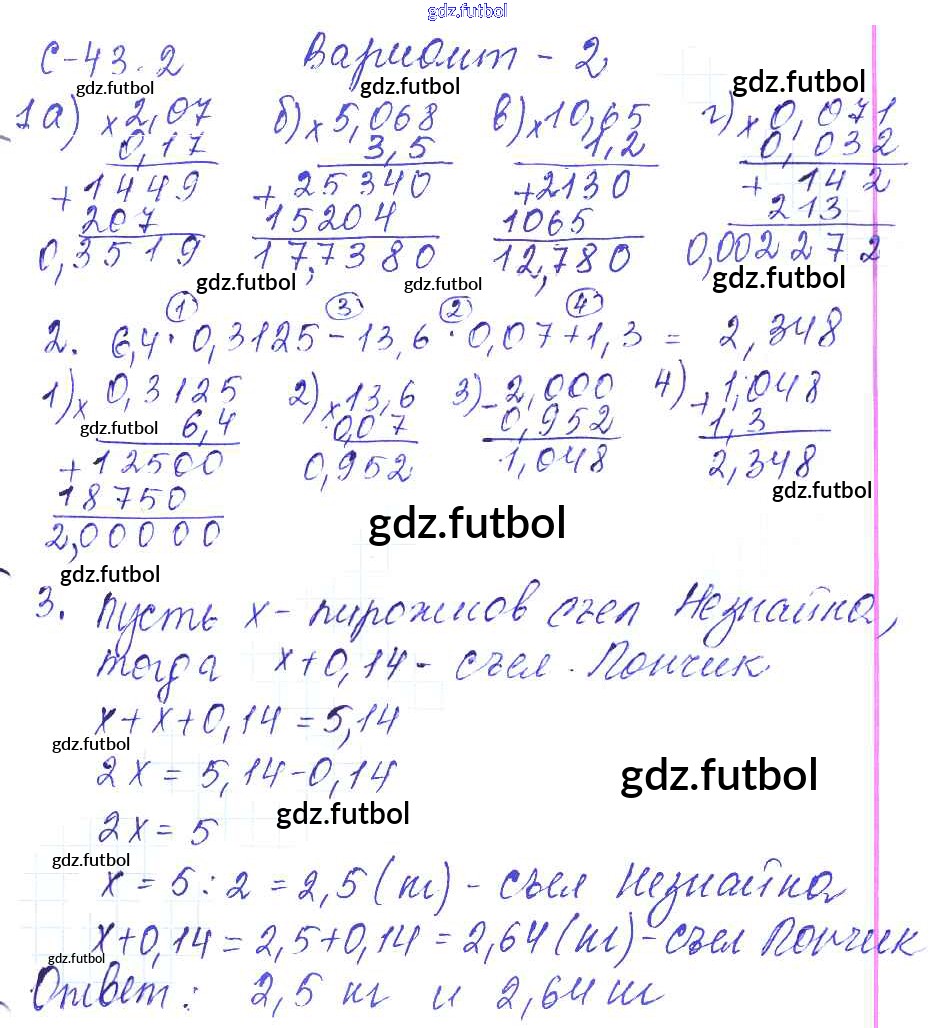 gdz.futbol
С-43.2 Вариант - 2
gdz.futbol gdz.futbol gdz.futbol
1 а) × 2,07 б) × 5,068 в) × 10,65 г) × 0,071
0,17 3,5 1,2 0,032
+ 1449 + 25340 + 2130 + 142
207 15204 1065 213
0,3519 17,7380 12,780 0,002272
gdz.futbol gdz.futbol gdz.futbol
1 3 2 4
2. 6,4 · 0,3125 - 13,6 · 0,07 + 1,3 = 2,348
1) × 0,3125 2) × 13,6 3) - 2,000 4) + 1,048
gdz.futbol 6,4 0,07 0,952 1,3
+ 12500 0,952 1,048 2,348
18750 gdz.futbol
2,00000 gdz.futbol
gdz.futbol
3. Пусть х - пирожков съел Незнайка,
тогда х+0,14 - съел Пончик
х + х + 0,14 = 5,14
gdz.futbol
2х = 5,14 - 0,14 gdz.futbol
gdz.futbol
2х = 5
gdz.futbol
х = 5 : 2 = 2,5 (кг) - съел Незнайка
х+0,14 = 2,5+0,14 = 2,64 (кг) - съел Пончик
gdz.futbol
Ответ: 2,5 кг и 2,64 кг